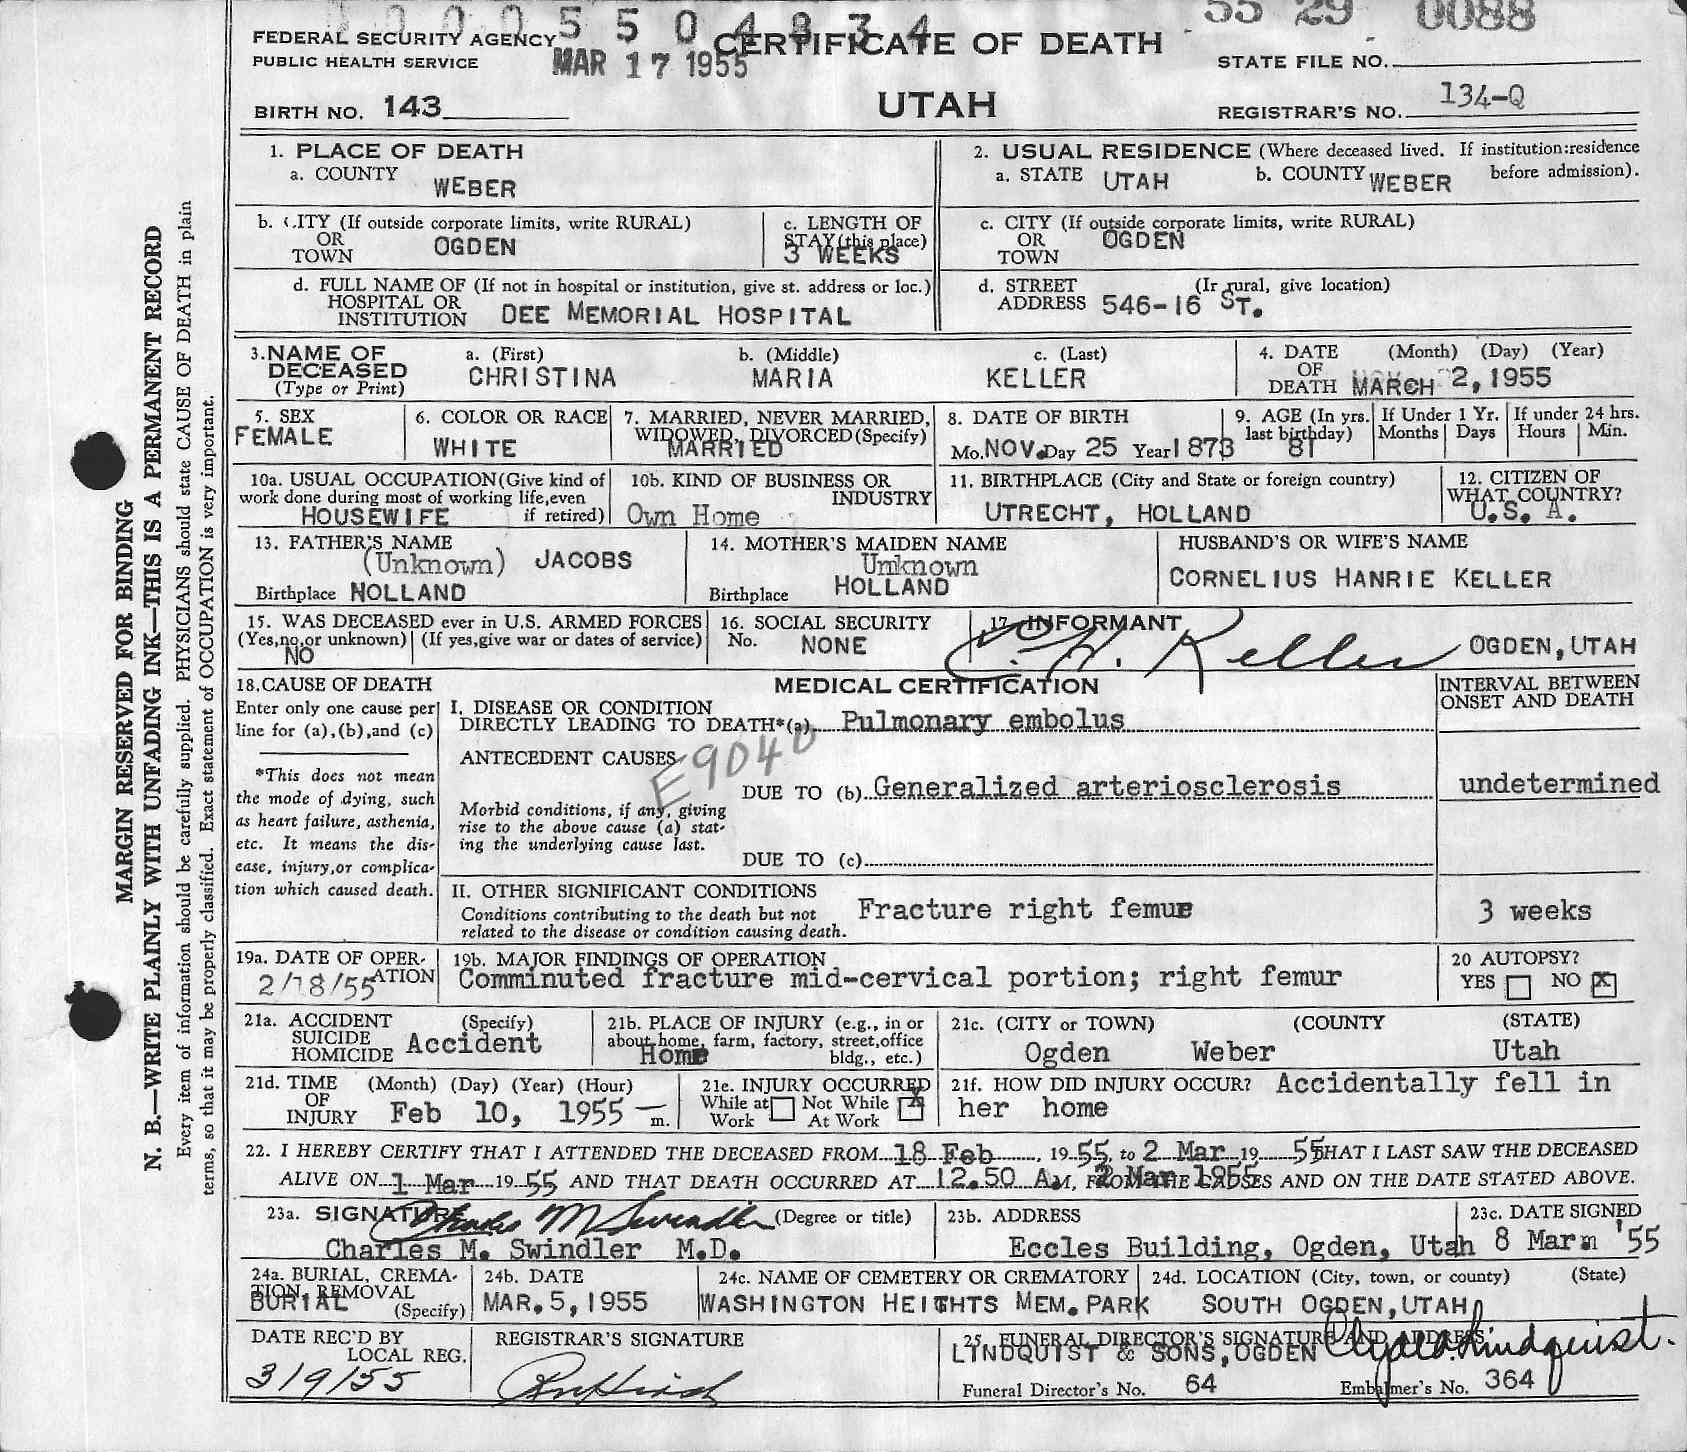 0 0 0 0 5 5 0 4 8 3 4
55 29 0088
FEDERAL SECURITY AGENCY
PUBLIC HEALTH SERVICE
MAR 17 1955
CERTIFICATE OF DEATH
STATE FILE NO.
BIRTH NO. 143
UTAH
REGISTRAR'S NO. 134-Q
MARGIN RESERVED FOR BINDING
N. B.—WRITE PLAINLY WITH UNFADING INK—THIS IS A PERMANENT RECORD
Every item of information should be carefully supplied. PHYSICIANS should state CAUSE OF DEATH in plain
terms, so that it may be properly classified. Exact statement of OCCUPATION is very important.
1. PLACE OF DEATH
a. COUNTY WEBER
2. USUAL RESIDENCE (Where deceased lived. If institution:residence before admission).
a. STATE UTAH b. COUNTY WEBER
b. CITY (If outside corporate limits, write RURAL)
OR
TOWN OGDEN
c. LENGTH OF
STAY (this place)
3 WEEKS
c. CITY (If outside corporate limits, write RURAL)
OR
TOWN OGDEN
d. FULL NAME OF (If not in hospital or institution, give st. address or loc.)
HOSPITAL OR
INSTITUTION DEE MEMORIAL HOSPITAL
d. STREET (Ir rural, give location)
ADDRESS 546-16 ST.
3. NAME OF
DECEASED
(Type or Print)
a. (First) b. (Middle) c. (Last)
CHRISTINA MARIA KELLER
4. DATE (Month) (Day) (Year)
OF
DEATH MARCH 2, 1955
5. SEX
FEMALE
6. COLOR OR RACE
WHITE
7. MARRIED, NEVER MARRIED,
WIDOWED, DIVORCED (Specify)
MARRIED
8. DATE OF BIRTH
Mo. NOV. Day 25 Year 1873
9. AGE (In yrs. last birthday)
81
If Under 1 Yr.
Months Days
If under 24 hrs.
Hours Min.
10a. USUAL OCCUPATION (Give kind of
work done during most of working life, even
if retired)
HOUSEWIFE
10b. KIND OF BUSINESS OR
INDUSTRY
Own Home
11. BIRTHPLACE (City and State or foreign country)
UTRECHT, HOLLAND
12. CITIZEN OF
WHAT COUNTRY?
U.S. A.
13. FATHER'S NAME
(Unknown) JACOBS
Birthplace HOLLAND
14. MOTHER'S MAIDEN NAME
Unknown
Birthplace HOLLAND
HUSBAND'S OR WIFE'S NAME
CORNELIUS HANRIE KELLER
15. WAS DECEASED ever in U.S. ARMED FORCES
(Yes, no, or unknown) (If yes, give war or dates of service)
NO
16. SOCIAL SECURITY
No. NONE
17. INFORMANT
C. H. Keller OGDEN, UTAH
18. CAUSE OF DEATH
Enter only one cause per
line for (a), (b), and (c)
*This does not mean
the mode of dying, such
as heart failure, asthenia,
etc. It means the dis-
ease, injury, or complica-
tion which caused death.
MEDICAL CERTIFICATION
INTERVAL BETWEEN
ONSET AND DEATH
I. DISEASE OR CONDITION
DIRECTLY LEADING TO DEATH*(a) Pulmonary embolus
E9040
ANTECEDENT CAUSES
Morbid conditions, if any, giving
rise to the above cause (a) stat-
ing the underlying cause last.
DUE TO (b) Generalized arteriosclerosis undetermined
DUE TO (c)
II. OTHER SIGNIFICANT CONDITIONS
Conditions contributing to the death but not
related to the disease or condition causing death.
Fracture right femur 3 weeks
19a. DATE OF OPER-
ATION
2/18/55
19b. MAJOR FINDINGS OF OPERATION
Comminuted fracture mid-cervical portion; right femur
20 AUTOPSY?
YES NO X
21a. ACCIDENT (Specify)
SUICIDE
HOMICIDE Accident
21b. PLACE OF INJURY (e.g., in or
about home, farm, factory, street, office
bldg., etc.)
Home
21c. (CITY or TOWN) (COUNTY (STATE)
Ogden Weber Utah
21d. TIME (Month) (Day) (Year) (Hour)
OF
INJURY Feb 10, 1955 — m.
21e. INJURY OCCURRED
While at Work Not While At Work X
21f. HOW DID INJURY OCCUR? Accidentally fell in
her home
22. I HEREBY CERTIFY THAT I ATTENDED THE DECEASED FROM 18 Feb, 1955, to 2 Mar 19 55 THAT I LAST SAW THE DECEASED
ALIVE ON 1 Mar 1955 AND THAT DEATH OCCURRED AT 12.50 A.M, 2 Mar 1955 FROM THE CAUSES AND ON THE DATE STATED ABOVE.
23a. SIGNATURE Charles M Swindler (Degree or title)
Charles M. Swindler M.D.
23b. ADDRESS
Eccles Building, Ogden, Utah
23c. DATE SIGNED
8 Mar '55
24a. BURIAL, CREMA-
TION, REMOVAL
(Specify)
BURIAL
24b. DATE
MAR. 5, 1955
24c. NAME OF CEMETERY OR CREMATORY
WASHINGTON HEIGHTS MEM. PARK
24d. LOCATION (City, town, or county) (State)
SOUTH OGDEN, UTAH
DATE REC'D BY
LOCAL REG.
3/9/55
REGISTRAR'S SIGNATURE
25. FUNERAL DIRECTOR'S SIGNATURE AND ADDRESS
LINDQUIST & SONS, OGDEN Clyde Lindquist.
Funeral Director's No. 64 Embalmer's No. 364